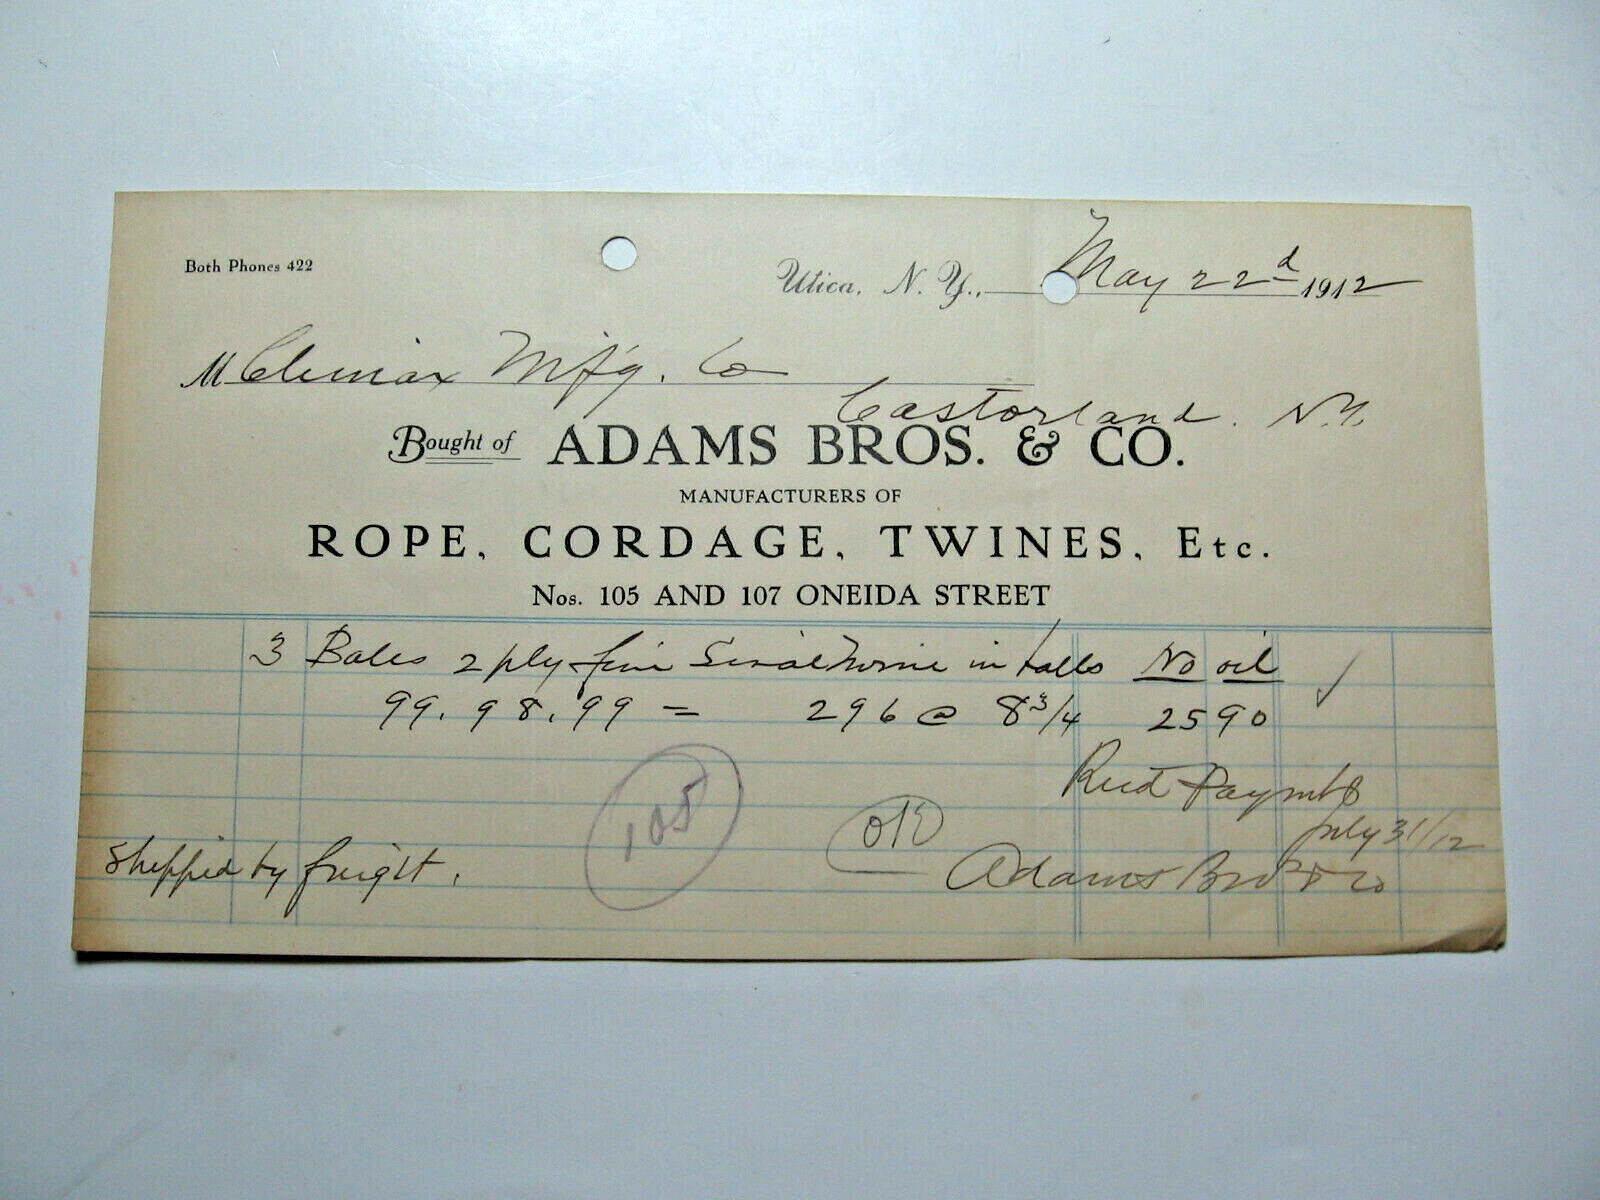 Both Phones 422
Utica, N. Y., May 22d 1912
M Climax M'f'g. Co
Castorland. N.Y.
Bought of ADAMS BROS. & CO.
MANUFACTURERS OF
ROPE, CORDAGE, TWINES, Etc.
Nos. 105 AND 107 ONEIDA STREET
3 Bales 2 ply fine Sisal Twine in balls No oil
99. 98. 99 = 296 @ 8 3/4 2590
Recd Paymt
July 31/12
108
OK
Shipped by freight.
Adams Bros & Co